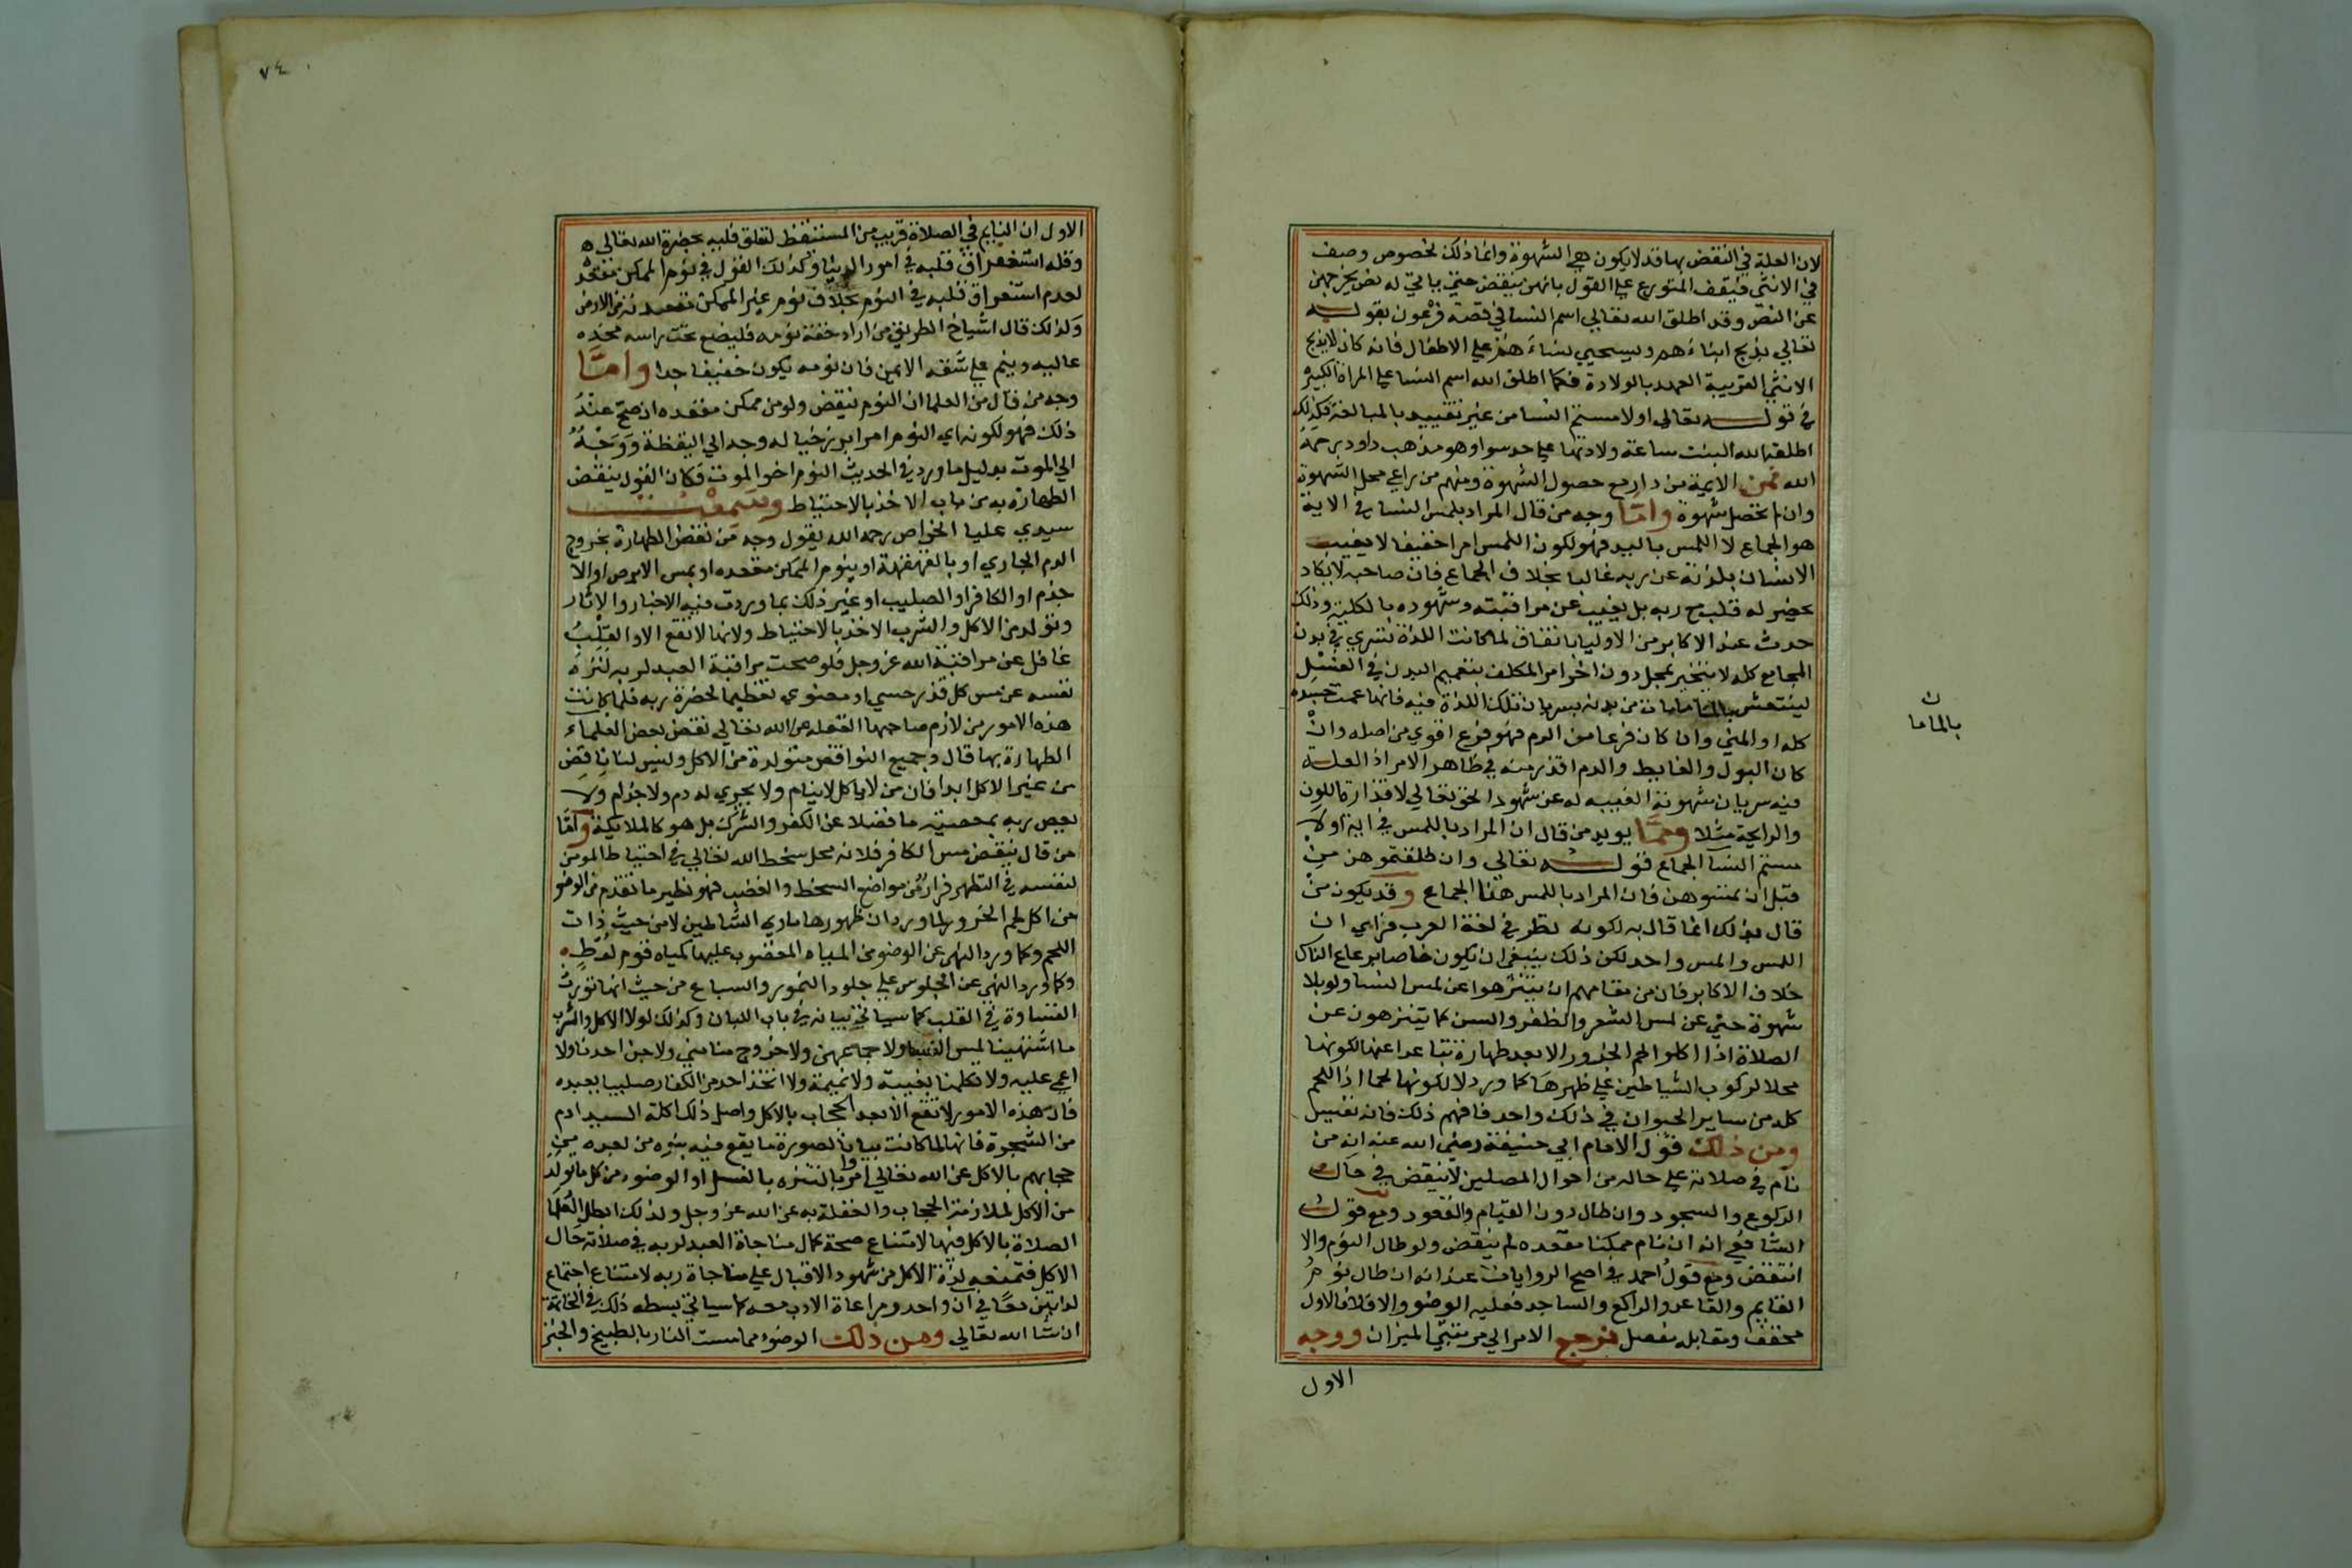 لان العلة في النقض بها قد لا يكون هي الشهوة وانما ذلك لخصوص وصف
في الانثى فيقف المتورع على القول بانهن ينقض حتى ياتي له نص يخرجهن
عن النقض وقد اطلق الله تعالى اسم النسا في قصة فرعون بقوله
تعالى يذبح ابناءهم ويستحيي نساءهم على الاطفال فانه كان لا يذبح
الانثى القريبة العهد بالولادة فكما اطلق الله اسم النسا على المراة الكبيرة
في قوله تعالى اولامستم النسا من غير تقييد بالمبالغة فكذلك
اطلقه الله البنت ساعة ولادتها على حد سوا وهو مذهب داود رحمة
الله فمن الايمة من دار مع حصول الشهوة ومنهم من راعي محل الشهوة
وان لم تحصل شهوة واما وجه من قال المراد بلمس النسا في الاية
هو الجماع لا اللمس باليد فهو لكون اللمس امرا خفيفا لا يغيب
الانسان بلذته عن ربه غالبا بخلاف الجماع فان صاحبه لا يكاد
يحضر له قلب مع ربه بل يغيب عن مراقبته وشهوده بالكلية وذلك
حدث عند الاكابر من الاوليا باتفاق لما كانت اللذة تسري في بدن
المجامع كله لا يتحيز بمحل دون اخر امر المكلف بتعميم البدن في الغسل
لينتعش بالما مامات من بدنه بسريان تلك اللذة فيه فانها عمت جسده
كله او المني وان كان فرعا من الدم فهو فرع اقوي من اصله وان
كان البول والغايط والدم اقذر منه في ظاهر الامر اذ العلة
فيه سريان شهوته المغيبه له عن شهود الحق تعالي لا قذارة اللون
والرايحة مثلا ومما يويد من قال ان المراد باللمس في اية اولا
مستم النسا الجماع قوله تعالي وان طلقتموهن من
قبل ان تمسوهن فان المراد باللمس هنا الجماع وقد يكون من
قال بذلك انما قال به لكونه نظر في لغة العرب فراي ان
اللمس والمس واحد لكن ذلك ينبغي ان يكون خاصا برعاع الناس
خلاف الاكابر فان من مقامهم ان يتنزهوا عن لمس النسا ولو بلا
شهوة حتي عن لمس الشعر والظفر والسن كما يتنزهون عن
الصلاة اذا اكلوا لحم الجزور الا بعد طهارة تباعدا عنها لكونها
محلا لركوب الشياطين علي ظهرها كما ورد لا لكونها لحما اذ اللحم
كله من ساير الحيوان في ذلك واحد فافهم ذلك فانه نفيس
ومن ذلك قول الامام ابي حنيفة رضي الله عنه انه من
نام في صلاته علي حاله من احوال المصلين لا ينقض في حال
الركوع والسجود وان طال دون القيام والقعود ومع قول
الشافعي انه ان نام ممكنا مقعده لم ينقض ولو طال النوم والا
انتقض ومع قول احمد في اصح الروايات عنه انه ان طال نوم
القايم والقاعد والراكع والساجد فعليه الوضو والا فلا فالاول
مخفف ومقابله مفصل فرجع الامر الي مرتبتي الميزان ووجه
الاول
ن
بالماما
٧٤
الاول ان النايم في الصلاة قريب من المستيقظ لتعلق قلبه بحضرة الله تعالي
وقلة استغراق قلبه في امور الدنيا وكذلك القول في نوم الممكن مقعده
لعدم استغراق قلبه في النوم بخلاف نوم غير الممكن مقعدته من الارض
ولذلك قال اشياخ الطريق من اراد خفة نومه فليضع تحت راسه مخده
عاليه وينم علي شقه الايمن فان نومه يكون خفيفا جدا واما
وجه من قال من العلما ان النوم ينقض ولو من ممكن مقعده ان صح عنه
ذلك فهو لكونه اي النوم امرا برزخيا له وجه الي اليقظة ووجه
الي الموت بدليل ما ورد في الحديث النوم اخو الموت فكان القول ينقض
الطهارة به من باب الاخذ بالاحتياط وسمعت
سيدي عليا الخواص رحمه الله يقول وجه من نقض الطهارة بخروج
الدم الجاري او بالقهقهة او بنوم الممكن مقعده او بمس الابرص او الا
جذم او الكافر او الصليب او غير ذلك بما وردت فيه الاخبار والاثار
وتولد من الاكل والشرب الاخذ بالاحتياط ولانها لا تقع الا والقلب
غافل عن مراقبة الله عز وجل فلو صحت مراقبة العبد لربه لنزه
نفسه عن مس كل قذر حسي او معنوي تعظيما لحضرة ربه فلما كانت
هذه الامور من لازم صاحبها الغفله عن الله تعالي نقض بعض العلماء
الطهارة بها قال وجميع النواقض متولدة من الاكل وليس لنا ناقض
من غير الاكل ابدا فان من لا ياكل لا ينام ولا يجري له دم ولا جذام ولا
يعص ربه بمعصية ما فضلا عن الكفر والشرك بل هو كالملايكة واما
من قال ينقض مس الكافر فلانه محل سخط الله تعالي في احتياط المومن
لنفسه في التطهر فرارا من مواضع السخط والغضب فهو نظير ما تقدم من الوضو
من اكل لحم الجزور لما ورد ان ظهورها ماوي الشياطين لا من حيث ذات
اللحم وكما ورد النهي عن الوضو من المياه المغضوب عليها كمياه قوم لوط
وكما ورد النهي عن الجلوس علي جلود النمور والسباع من حيث انها تورث
القساوة في القلب كما سياتي بيانه في باب اللباس وكذلك لولا الاكل والشرب
ما اشتهينا لمس النسا ولا جماعهن ولا خروج منا مني ولا جن احدنا ولا
اغمي عليه ولا تكلمنا بغيبة ولا نميمة ولا اتخذ احد من الكفار صليبا يعبده
فان هذه الامور لا تقع الا بعد الحجاب بالاكل واصل ذلك اكلة السيد ادم
من الشجرة فانها لما كانت بيانا لصورة ما يقع فيه بنوه من بعده من
حجابهم بالاكل عن الله تعالي امروا بالتنزه بالغسل او الوضوء من كل ما تولد
من الاكل لملازمة الحجاب والغفلة به عن الله عز وجل ولذلك ابطل العلما
الصلاة بالاكل فيها لامتناع صحة كمال مناجاة العبد لربه في صلاته حال
الاكل فتمنعه لذة الاكل من شهود الاقبال علي مناجاة ربه لامتناع اجتماع
لذاتين معا في ان واحد ومراعاة الادب معه كما سياتي بسطه ذلك في الخاتمة
ان شا الله تعالي ومن ذلك الوضوء مما مست النار بالطبيخ والخبز